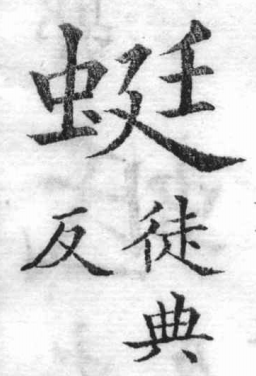 蜓
徒典
反